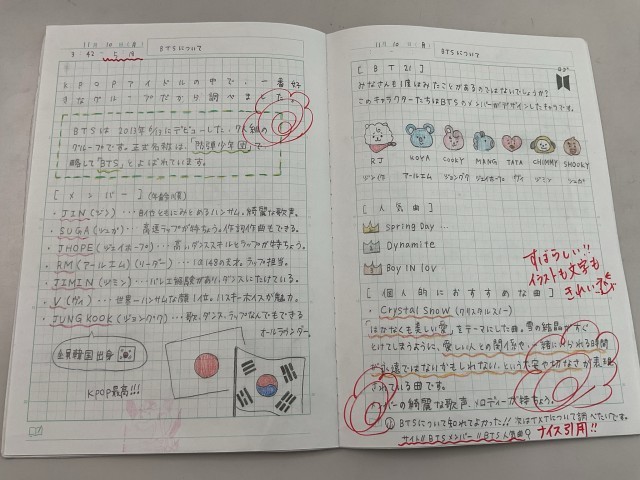 11月 10日(月)
BTSについて
KPOPアイドルの中で、一番好
きなグループだから調べました。
BTSは2013年6/13にデビューした、7人組の
グループです。正式名称は、「防弾少年団」で
略して「BTS」とよばれています。
[メンバー](年齢順)
・JIN(ジン)…自他ともにみとめるハンサム。綺麗な歌声。
・SUGA(シュガ)…高速ラップが特ちょう。作詞作曲もできる。
・JHOPE(ジェイホープ)…高いダンススキルとラップが特ちょう。
・RM(アールエム)(リーダー)…IQ148の天才。ラップ担当。
・JIMIN(ジミン)…バレエ経験があり、ダンスにたけている。
・V(ヴィ)…世界一ハンサムな顔1位。ハスキーボイスが魅力。
・JUNGKOOK(ジョングク)…歌、ダンス、ラップなんでもできる
オールラウンダー。
全員韓国出身
KPOP最高!!!
11月 10日(月)
BTSについて
[BT21]
みなさんも1度はみたことがあるのではないでしょうか?
このキャラクターたちはBTSのメンバーがデザインしたキャラです。
RJ KOYA COOKY MANG TATA CHIMMY SHOOKY
ジン アールエム ジョングク ジェイホープ ヴィ ジミン シュガ
[人気曲]
Spring Day
Dynamite
Boy IN lov
すばらしい!!
イラストも文字も
きれい
[個人的におすすめな曲]
・Crystal Snow(クリスタルスノー)
「はかなくも美しい愛」をテーマにした曲。雪の結晶がすぐ
とけてしまうように、愛しい人との関係や、一緒にいられる時間
が永遠ではないかもしれない、という不安や切なさが表現
されている曲です。
メンバーの綺麗な歌声、メロディーが特ちょう。
BTSについて知れてよかった!! 次はTXTについて調べたいです。
サイト//BTSメンバー//BTS人気曲
ナイス引用!!